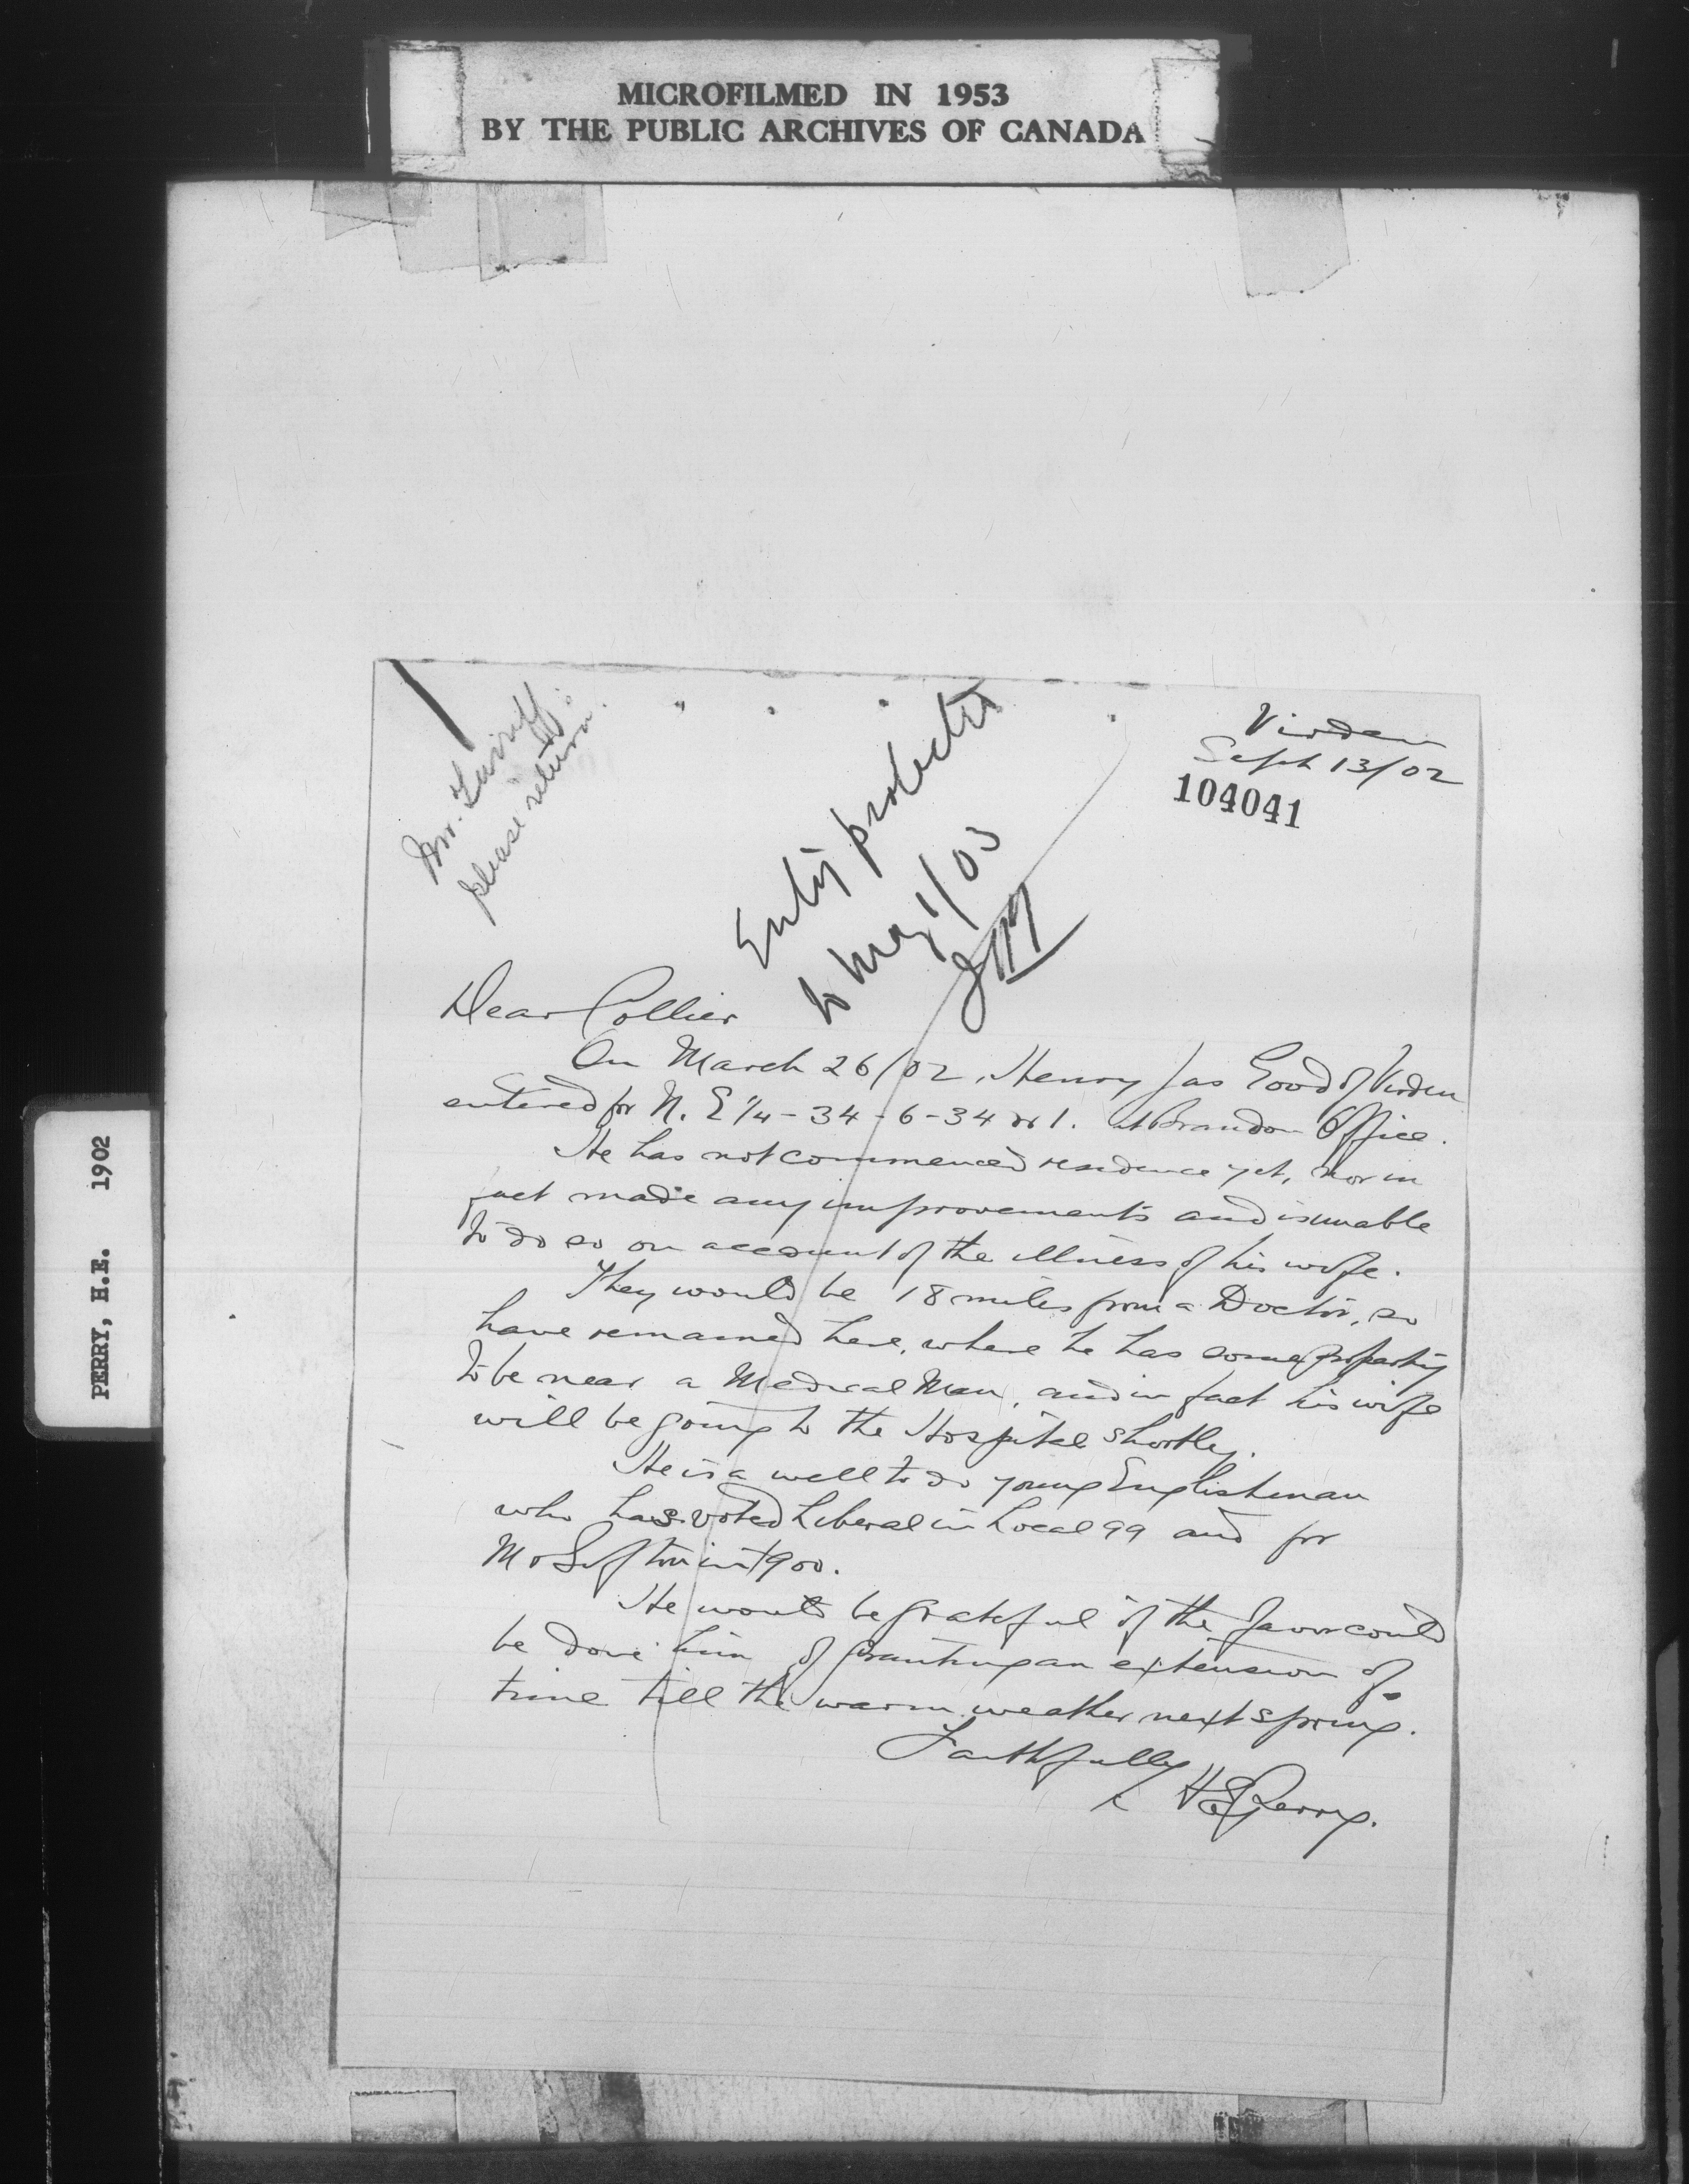 MICROFILMED IN 1953
BY THE PUBLIC ARCHIVES OF CANADA
PERRY, H.E. 1902
Mr. Turriff:
please return.
Entry protected
to May 1/03
Virden
Sept 13/02
104041
Dear Collier
On March 26/02, Henry Jas Good of Virden
entered for N. E 1/4 - 34 - 6 - 34 W 1. at Brandon Office.
He has not commenced residence yet, nor in
fact made any improvements and is unable
to do so on account of the illness of his wife.
They would be 18 miles from a Doctor, so
have remained here, where he has some property
to be near a Medical Man, and in fact his wife
will be going to the Hospital shortly.
He is a well to do young Englishman
who has voted Liberal in Local 99 and for
Mr Sifton in 1900.
He would be grateful if the favor could
be done him of granting an extension of
time till the warm weather next spring.
Faithfully
H E Perry.